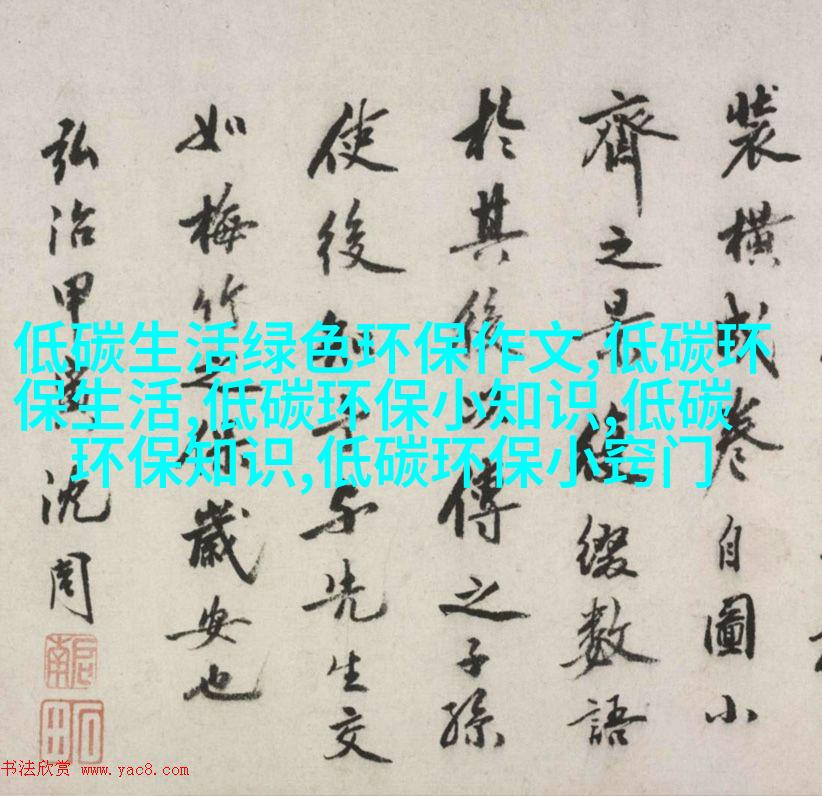 裝橫成卷自圖小
齊之景使綴數語
於其後以傳之子孫
使後知予與先生交
如梅竹之保歲安也
弘治甲寅沈周
低碳生活绿色环保作文,低碳环
保生活,低碳环保小知识,低碳
环保知识,低碳环保小窍门
书法欣赏 www.yac8.com